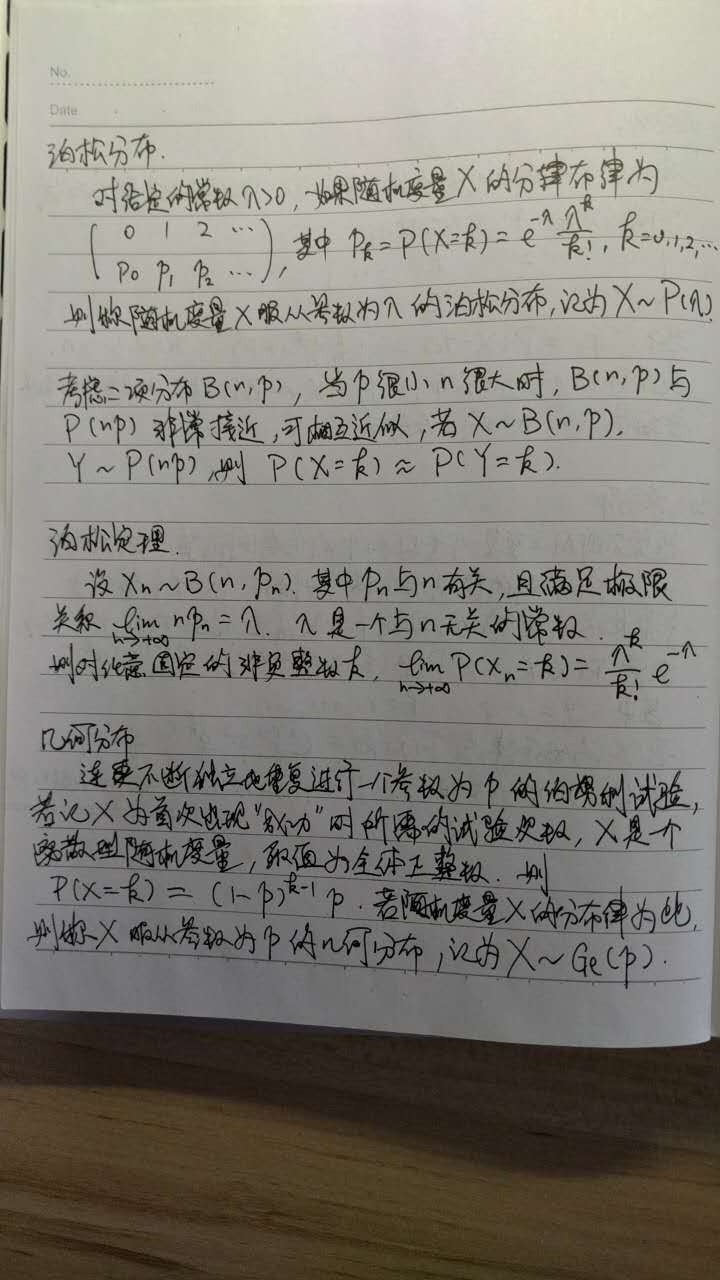 No.
Date
泊松分布.
对给定的常数λ>0, 如果随机变量X的分律布律为
( 0 1 2 ⋯
p₀ p₁ p₂ ⋯ ), 其中 pₖ=P(X=k)=e^{-λ} λ^k/k!, k=0,1,2,⋯
则称随机变量X服从参数为λ的泊松分布,记为X~P(λ).
考虑二项分布B(n,p), 当p很小n很大时, B(n,p)与
P(np)非常接近,可相互近似,若X~B(n,p),
Y~P(np),则 P(X=k)≈P(Y=k).
泊松定理.
设Xₙ~B(n,pₙ). 其中pₙ与n有关,且满足极限
关系 lim_{n→+∞} npₙ=λ. λ是一个与n无关的常数.
则对任意固定的非负整数k, lim_{n→+∞} P(Xₙ=k)= λ^k/k! e^{-λ}
几何分布
连续不断独立地重复进行一个参数为p的伯努利试验,
若记X为首次出现"成功"时所需的试验次数, X是一个
离散型随机变量, 取值为全体正整数. 则
P(X=k)=(1-p)^{k-1}p. 若随机变量X的分布律为此,
则称X服从参数为p的几何分布,记为X~Ge(p).